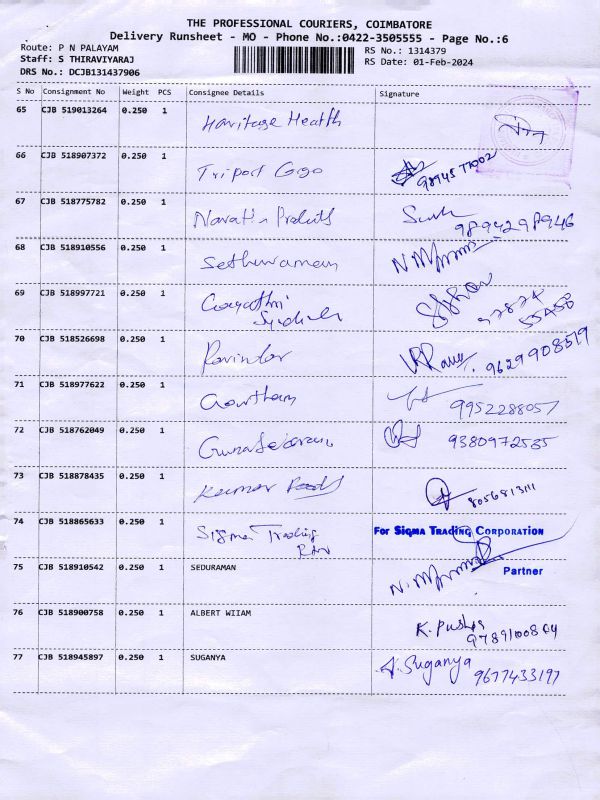 THE PROFESSIONAL COURIERS, COIMBATORE
Delivery Runsheet - MO - Phone No.:0422-3505555 - Page No.:6
Route: P N PALAYAM RS No.: 1314379
Staff: S THIRAVIYARAJ RS Date: 01-Feb-2024
DRS No.: DCJB131437906
S No Consignment No Weight PCS Consignee Details Signature
65 CJB 519013264 0.250 1 Heritage Health
66 CJB 518907372 0.250 1 Triport Gigo 9894577002
67 CJB 518775782 0.250 1 Navatin Products 9894298946
68 CJB 518910556 0.250 1 Sethuraman
69 CJB 518997721 0.250 1 Gayathri 97874
55450
70 CJB 518526698 0.250 1 Ravindar 9629908519
71 CJB 518977622 0.250 1 Gowtham 9952288057
72 CJB 518762049 0.250 1 Gunasekaran 9380972535
73 CJB 518878435 0.250 1 Kumar 8056813111
74 CJB 518865633 0.250 1 Sigma Trading For SIGMA TRADING CORPORATION
75 CJB 518910542 0.250 1 SEDURAMAN Partner
76 CJB 518900758 0.250 1 ALBERT WIIAM K. Pushpa
9789100864
77 CJB 518945897 0.250 1 SUGANYA A. Suganya 9677433197